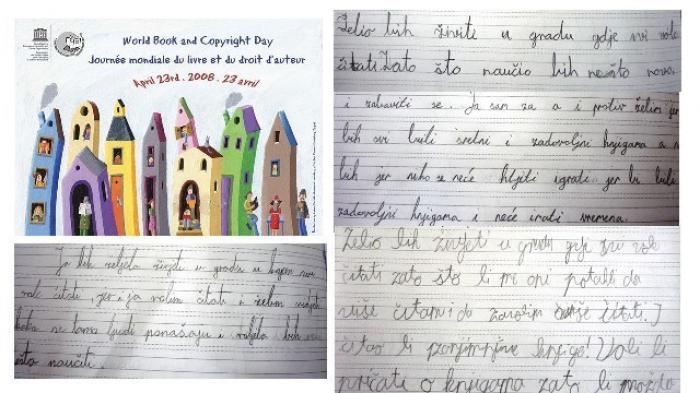 World Book and Copyright Day
Journée mondiale du livre et du droit d'auteur
April 23rd . 2008 . 23 avril
Ja bih željela živjeti u gradu u kojem svi
vole čitati, jer i ja volim čitati i želim vidjeti
kako se tamo ljudi ponašaju i voljela bih
nešto naučiti.
Želio bih živiti u gradu gdje svi vole
čitati. Zato što naučio bih nešto novo
i zabaviti se. Ja sam za a i protiv želim jer
bih svi bili sretni i zadovoljni knjigama a ne
bih jer niko se neće htjeti igrati jer bi bili
zadovoljni knjigama i neće imati vremena.
Želio bih živjeti u gradu gdje svi vole
čitati zato što bi mi oni pomagali da
više čitam i da zavolim čitati. I
čitao bi zanimljive knjige! Volio bi
pričati o knjigama zato bi možda